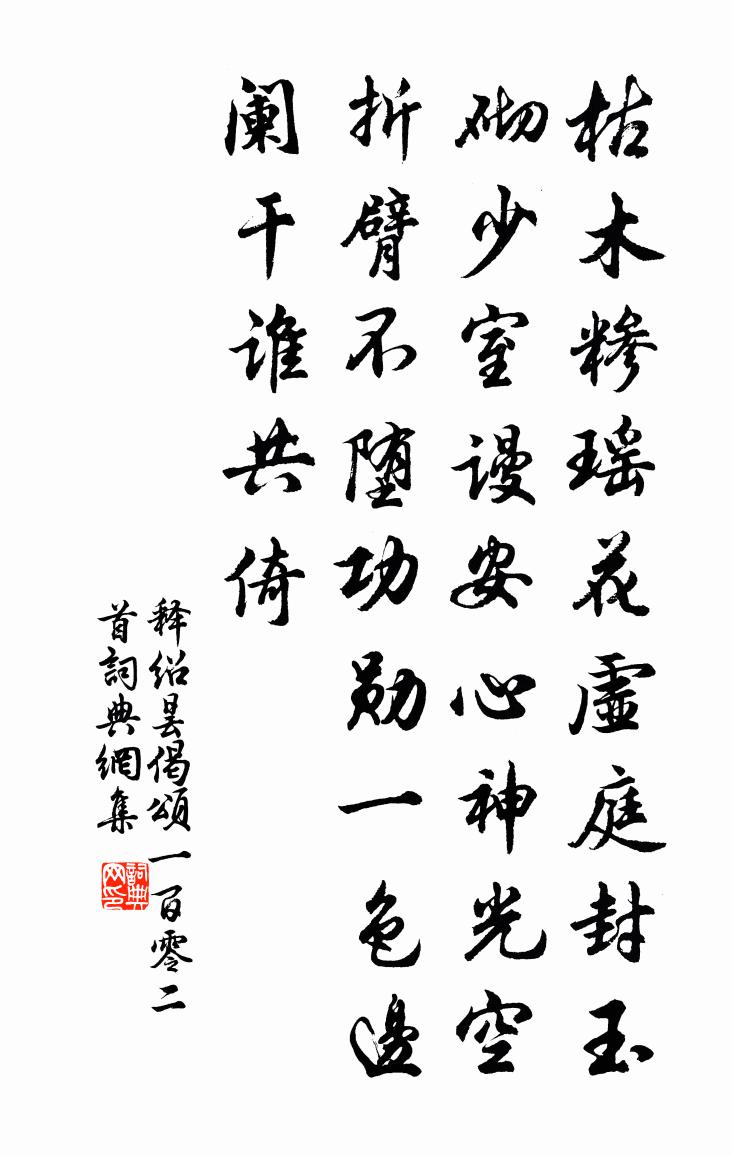 枯木糝瑶花虛庭封玉
砌少室谩安心神光空
折臂不堕功勋一色邊
阑干誰共倚
释绍昙偈頌一百零二
首詞典網集
詞典网印